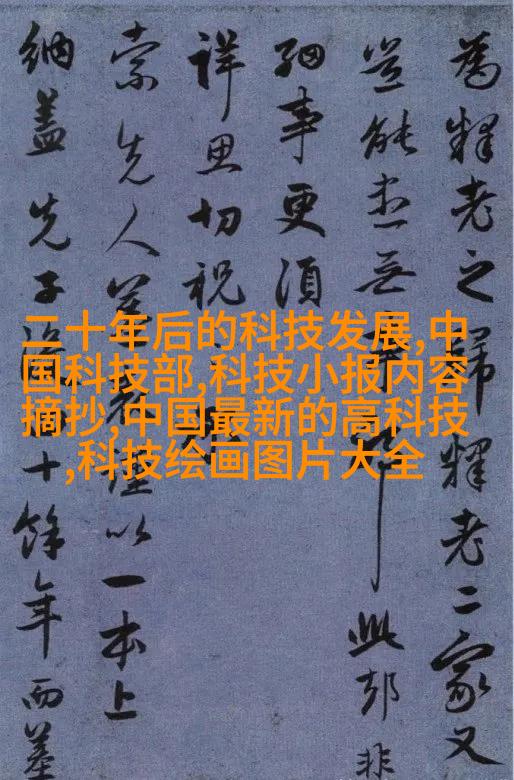 二十年后的科技发展,中
国科技部,科技小报内容
摘抄,中国最新的高科技
,科技绘画图片大全
為釋老之歸釋老二家又
豈能無此却非
細事更須
詳思切祝
索先人以一本上
納蓋先子十餘年而墓